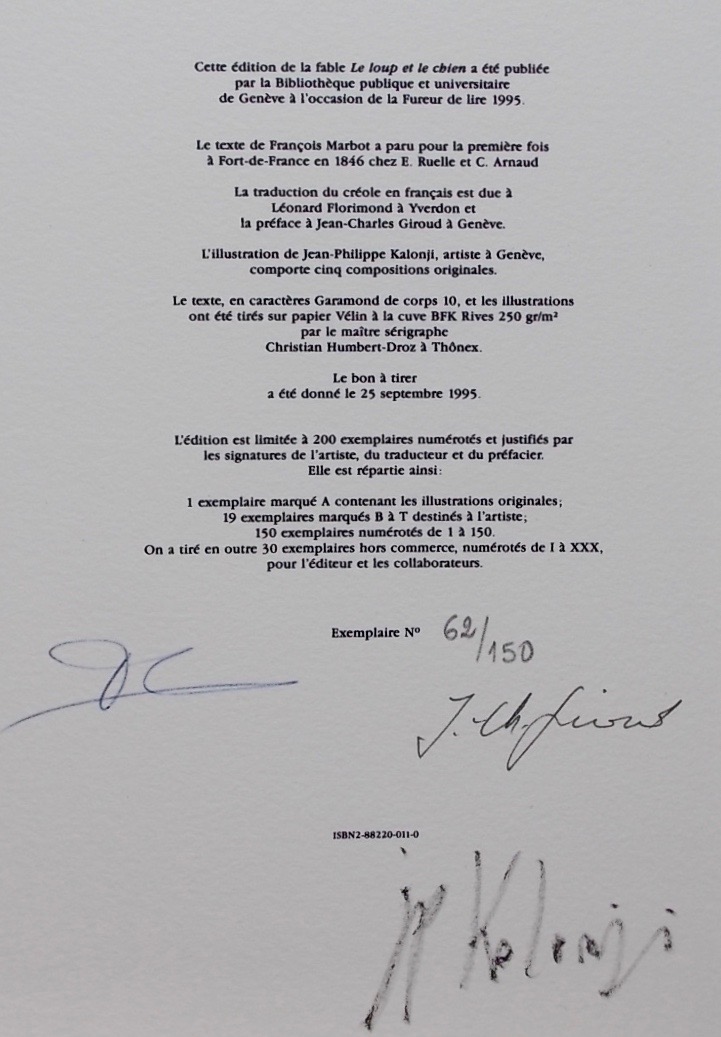 Cette édition de la fable Le loup et le chien a été publiée
par la Bibliothèque publique et universitaire
de Genève à l'occasion de la Fureur de lire 1995.
Le texte de François Marbot a paru pour la première fois
à Fort-de-France en 1846 chez E. Ruelle et C. Arnaud
La traduction du créole en français est due à
Léonard Florimond à Yverdon et
la préface à Jean-Charles Giroud à Genève.
L'illustration de Jean-Philippe Kalonji, artiste à Genève,
comporte cinq compositions originales.
Le texte, en caractères Garamond de corps 10, et les illustrations
ont été tirés sur papier Vélin à la cuve BFK Rives 250 gr/m²
par le maître sérigraphe
Christian Humbert-Droz à Thônex.
Le bon à tirer
a été donné le 25 septembre 1995.
L'édition est limitée à 200 exemplaires numérotés et justifiés par
les signatures de l'artiste, du traducteur et du préfacier.
Elle est répartie ainsi:
1 exemplaire marqué A contenant les illustrations originales;
19 exemplaires marqués B à T destinés à l'artiste;
150 exemplaires numérotés de 1 à 150.
On a tiré en outre 30 exemplaires hors commerce, numérotés de I à XXX,
pour l'éditeur et les collaborateurs.
Exemplaire Nº 62/150
J. Ch. Giroud
ISBN2-88220-011-0
JP Kalonji